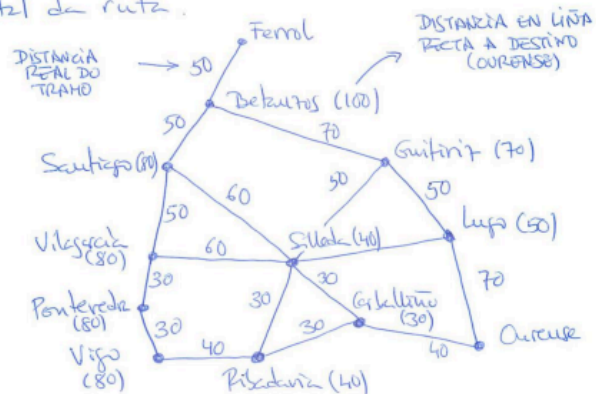 tal da ruta.
DISTANCIA REAL DO TRAMO
DISTANCIA EN LIÑA RECTA A DESTINO (OURENSE)
Ferrol
50
Betanzos (100)
50
70
Santiago (80)
Guitiriz (70)
50
60
50
50
Lugo (50)
Vilagarcía (80)
60
Silleda (40)
30
30
30
70
Pontevedra (80)
Carballiño (30)
30
30
Ourense
Vigo (80)
40
40
Ribadavia (40)